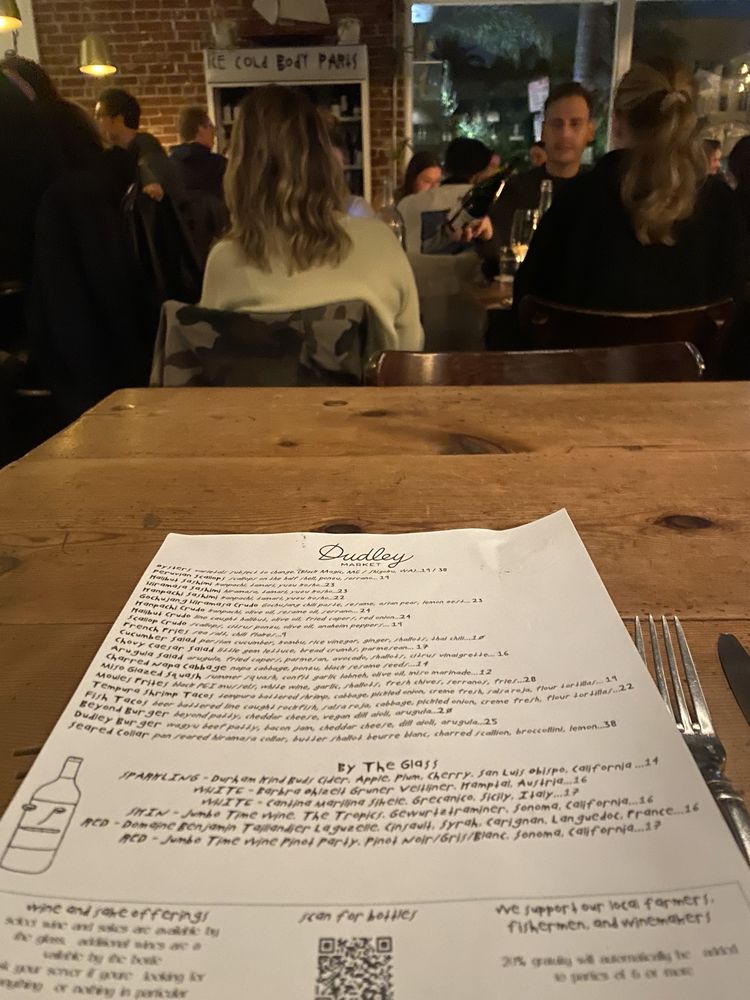 ICE COLD BODY PARTS
Dudley
MARKET
Oysters varietals subject to change, (Black Magic, ME / Shigoku, WA)...19/38
Peruvian Scallops scallops on the half shell, ponzu, serrano...19
Halibut Sashimi
Hiramasa Sashimi hiramasa, tamari, yuzu kosho...23
Kanpachi Sashimi kanpachi, tamari, yuzu kosho...22
Gochujang Hiramasa Crudo gochujang chili paste, sesame, asian pear, lemon zest...23
Kanpachi Crudo kanpachi, olive oil, sesame oil, serrano
Halibut Crudo line caught halibut, olive oil, fried capers, red onion...24
Scallop Crudo scallops, citrus ponzu, olive oil, anaheim peppers...19
French Fries sea salt, chili flakes...9
Cucumber Salad persian cucumber, kombu, rice vinegar, ginger, shallots, thai chili...10
Chovy Caesar Salad little gem lettuce, bread crumbs, parmesan...17
Arugula Salad arugula, fried capers, parmesan, avocado, shallots, citrus vinaigrette...16
Charred Napa Cabbage napa cabbage, ponzu, black sesame seeds...14
Miso Glazed Squash summer squash, confit garlic labneh, olive oil, miso marinade...12
Moules Frites black PEI mussels, white wine, garlic, shallots, fresh chives, serranos, fries...28
Tempura Shrimp Tacos tempura battered shrimp, cabbage, pickled onion, creme fresh, salsa roja, flour tortillas...19
Fish Tacos beer battered line caught rockfish, salsa roja, cabbage, pickled onion, creme fresh, flour tortillas...22
Beyond Burger beyond patty, cheddar cheese, vegan dill aioli, arugula...20
Dudley Burger wagyu beef patty, bacon jam, cheddar cheese, dill aioli, arugula...25
Seared Collar pan seared hiramasa collar, butter shallot beurre blanc, charred scallion, broccolini, lemon...38
By The Glass
SPARKLING - Durham Kind Buds Cider, Apple, Plum, Cherry, San Luis Obispo, California...14
WHITE - Barbra Ohlzelt Gruner Veltliner, Kamptal, Austria...16
WHITE - Cantina Marilina Sihele, Grecanico, Sicily, Italy...17
SKIN - Jumbo Time Wine, The Tropics, Gewurtztraminer, Sonoma, California...16
RED - Domaine Benjamin Taillandier Laguzelle, Cinsault, Syrah, Carignan, Languedoc, France...16
RED - Jumbo Time Wine Pinot Party, Pinot Noir/Gris/Blanc, Sonoma, California...17
wine and sake offerings
select wine and sakes are available by
the glass, additional wines are a
vailable by the bottle
ask your server if youre looking for
anything or nothing in particular
scan for bottles
We support our local farmers,
fishermen, and winemakers
20% gratuity will automatically be added
to parties of 6 or more